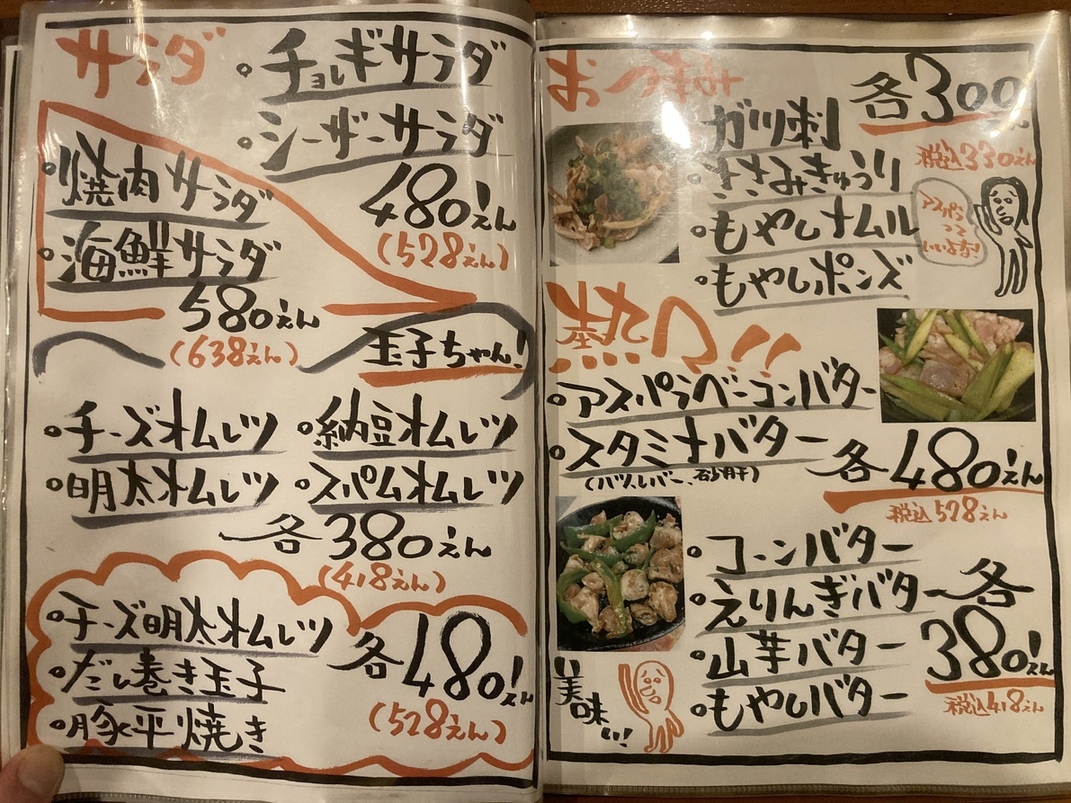 サラダ
・チョレギサラダ
・シーザーサラダ
480えん
(528えん)
・焼肉サラダ
・海鮮サラダ
580えん
(638えん)
玉子ちゃん!
・チーズオムレツ
・納豆オムレツ
・明太オムレツ
・スパムオムレツ
各380えん
(418えん)
・チーズ明太オムレツ
・だし巻き玉子
・豚平焼き
各480えん
(528えん)
おつまみ
各300
税込330えん
・ガツ刺
・ささみきゅうり
・もやしナムル
・もやしポンズ
アスパラ
って
いいよな!
熱
・アスパラベーコンバター
・スタミナバター
(ハツ、レバー、砂肝)
各480えん
税込528えん
・コーンバター
・えりんぎバター
・山芋バター
・もやしバター
各
380えん
税込418えん
美味い!